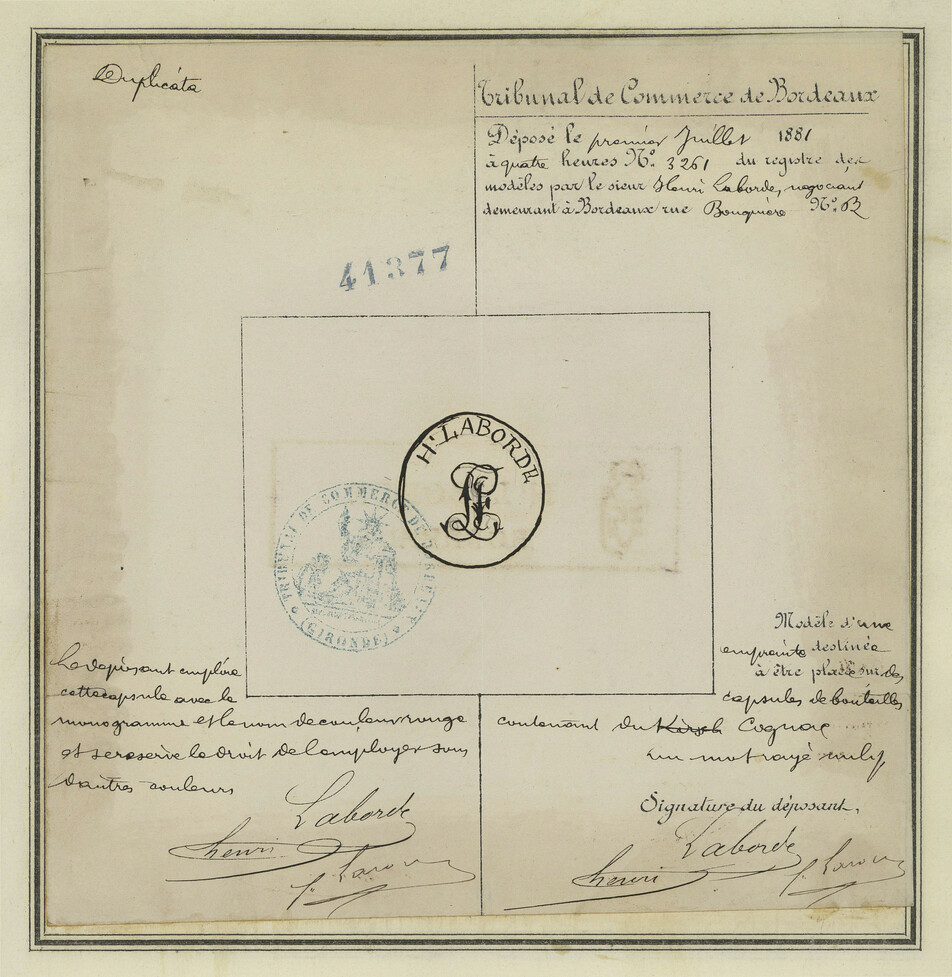 Duplicata
Tribunal de Commerce de Bordeaux
Déposé le premier Juillet 1881
à quatre heures No. 3261 du registre des
modèles par le sieur Henri Laborde, negociant
demeurant à Bordeaux rue Bouquière No.
41377
Hri LABORDE
TRIBUNAL DE COMMERCE DE BORDEAUX
(GIRONDE)
Modèle d'une
empreinte destinée
à être placée sur des
capsules de bouteilles
contenant du Kirsch Cognac
un mot rayé nul
Signature du déposant,
Laborde
henri
Le déposant emploie
cette capsule avec le
monogramme et le nom de couleur rouge
et se reserve le droit de l'employer sous
d'autres couleurs
Laborde
henri